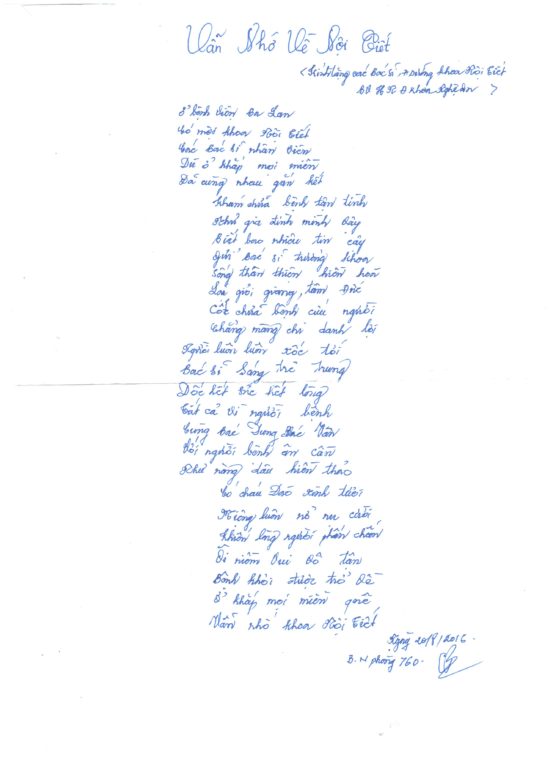 Vẫn Nhớ Về Nội Tiết
(Kính tặng các bác sĩ, điều dưỡng khoa Nội Tiết
BV HN Đ Khoa Nghệ An)
Ở bệnh viện Ba Lan
Có một khoa Nội Tiết
Các bác sĩ nhân viên
Dù ở khắp mọi miền
Đã cùng nhau gắn kết
Khám chữa bệnh tận tình
Như gia đình mình vậy
Biết bao nhiêu tin cậy
Gửi bác sĩ trưởng khoa
Sống thân thiện hiền hoà
Lại giỏi giang, tâm đức
Cốt chữa bệnh cứu người
Chẳng màng chi danh lợi
Người luôn luôn xốc tới
Bác sĩ Sáng trẻ trung
Dốc hết sức hết lòng
Tất cả vì người bệnh
Cùng bác Dung bác Vân
Với người bệnh ân cần
Như nàng dâu hiền thảo
Có cháu Đào xinh tươi
Miệng luôn nở nụ cười
Khiến lòng người phấn chấn
Ôi niềm vui vô tận
Bệnh khỏi được trở về
Ở khắp mọi miền quê
Vẫn nhớ khoa Nội Tiết
Ngày 20/8/2016.
B.N phòng 760.